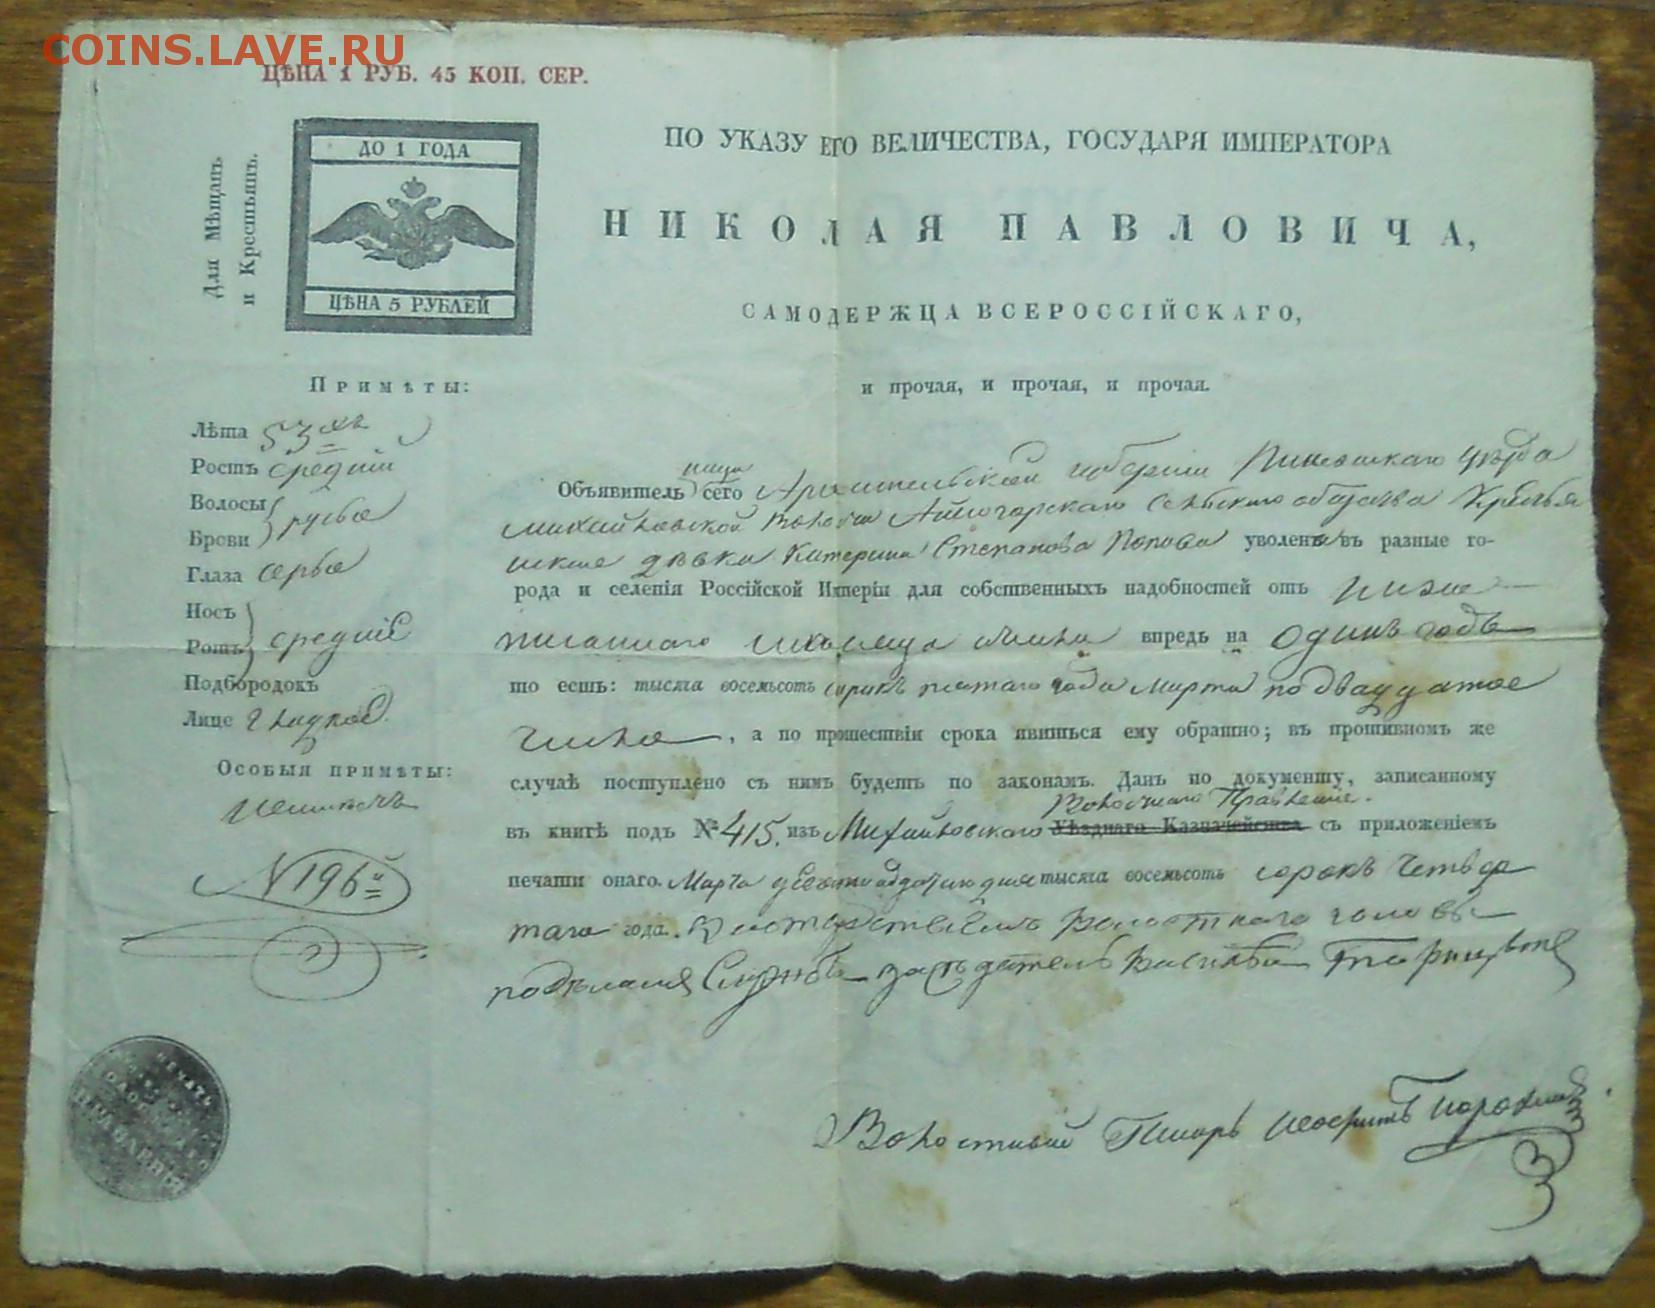 COINS.LAVE.RU
ЦѢНА 1 РУБ. 45 КОП. СЕР.
Для Мѣщанъ
и Крестьянъ.
ДО 1 ГОДА
ЦѢНА 5 РУБЛЕЙ
ПО УКАЗУ ЕГО ВЕЛИЧЕСТВА, ГОСУДАРЯ ИМПЕРАТОРА
НИКОЛАЯ ПАВЛОВИЧА,
САМОДЕРЖЦА ВСЕРОССІЙСКАГО,
и прочая, и прочая, и прочая.
Примѣты:
Лѣта 53хъ
Ростъ средній
Волосы
Брови русые
Глаза серые
Носъ
Ротъ средніе
Подбородокъ
Лице гладкое
Особыя примѣты:
N 196й
Объявитель сего Архангельской губерніи Пинежскаго уѣзда
Михайловской волости сельскаго общества Крестья
дѣвка Катерина Степанова Попова уволена въ разные го-
рода и селенія Россійской Имперіи для собственныхъ надобностей отъ ниже
писаннаго числа впредь на одинъ годъ
то есть: тысяча восемьсотъ сорокъ пятаго года Марта по двадцатое
число, а по прошествіи срока явиться ему обратно; въ противномъ же
случаѣ поступлено съ нимъ будетъ по законамъ. Данъ по документу, записанному
Волостнаго Правленія.
въ книгѣ подъ № 415. изъ Михайловскаго Уѣзднаго Казначейства съ приложеніемъ
печати онаго. Марта дня тысяча восемьсотъ сорокъ четвер
таго года. Волостнаго головы
заседатель Василей
Волостный Писарь
ПЕЧАТЬ